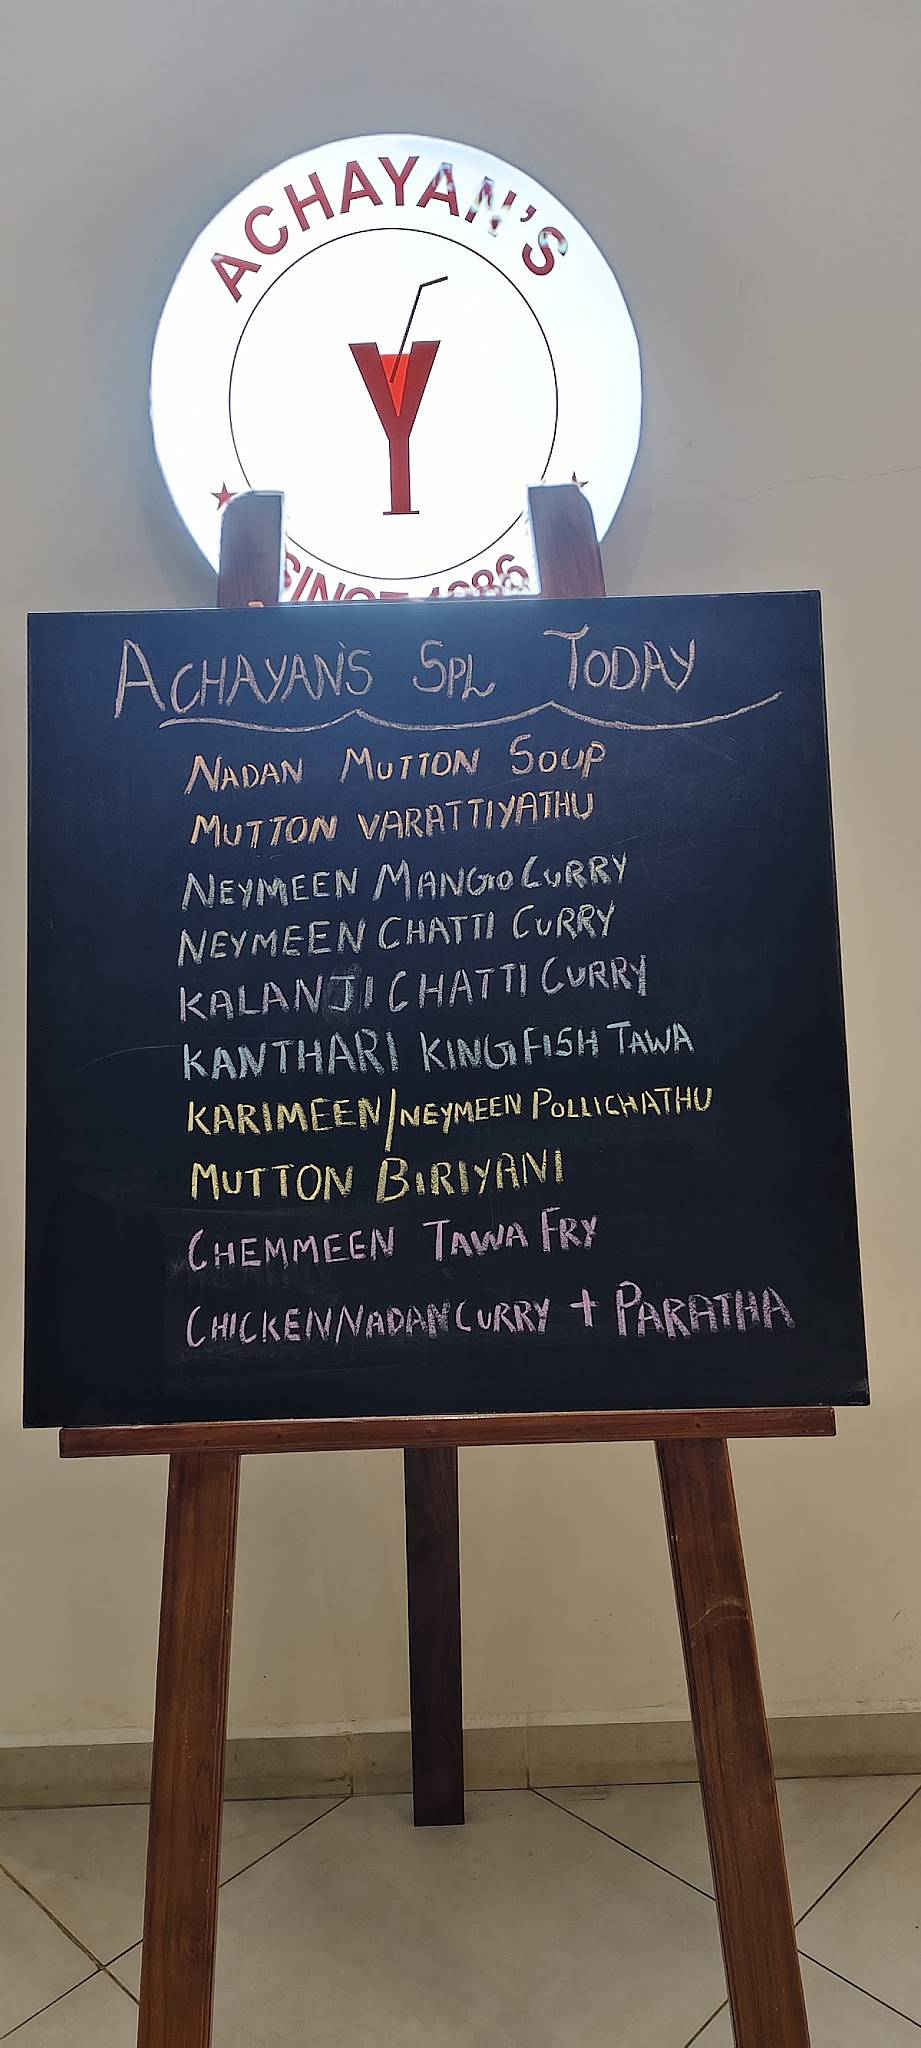 ACHAYAN'S
Y
SINCE 1986
ACHAYAN'S SPL TODAY
NADAN MUTTON SOUP
MUTTON VARATTIYATHU
NEYMEEN MANGO CURRY
NEYMEEN CHATTI CURRY
KALANJI CHATTI CURRY
KANTHARI KINGFISH TAWA
KARIMEEN/NEYMEEN POLLICHATHU
MUTTON BIRIYANI
CHEMMEEN TAWA FRY
CHICKEN NADAN CURRY + PARATHA